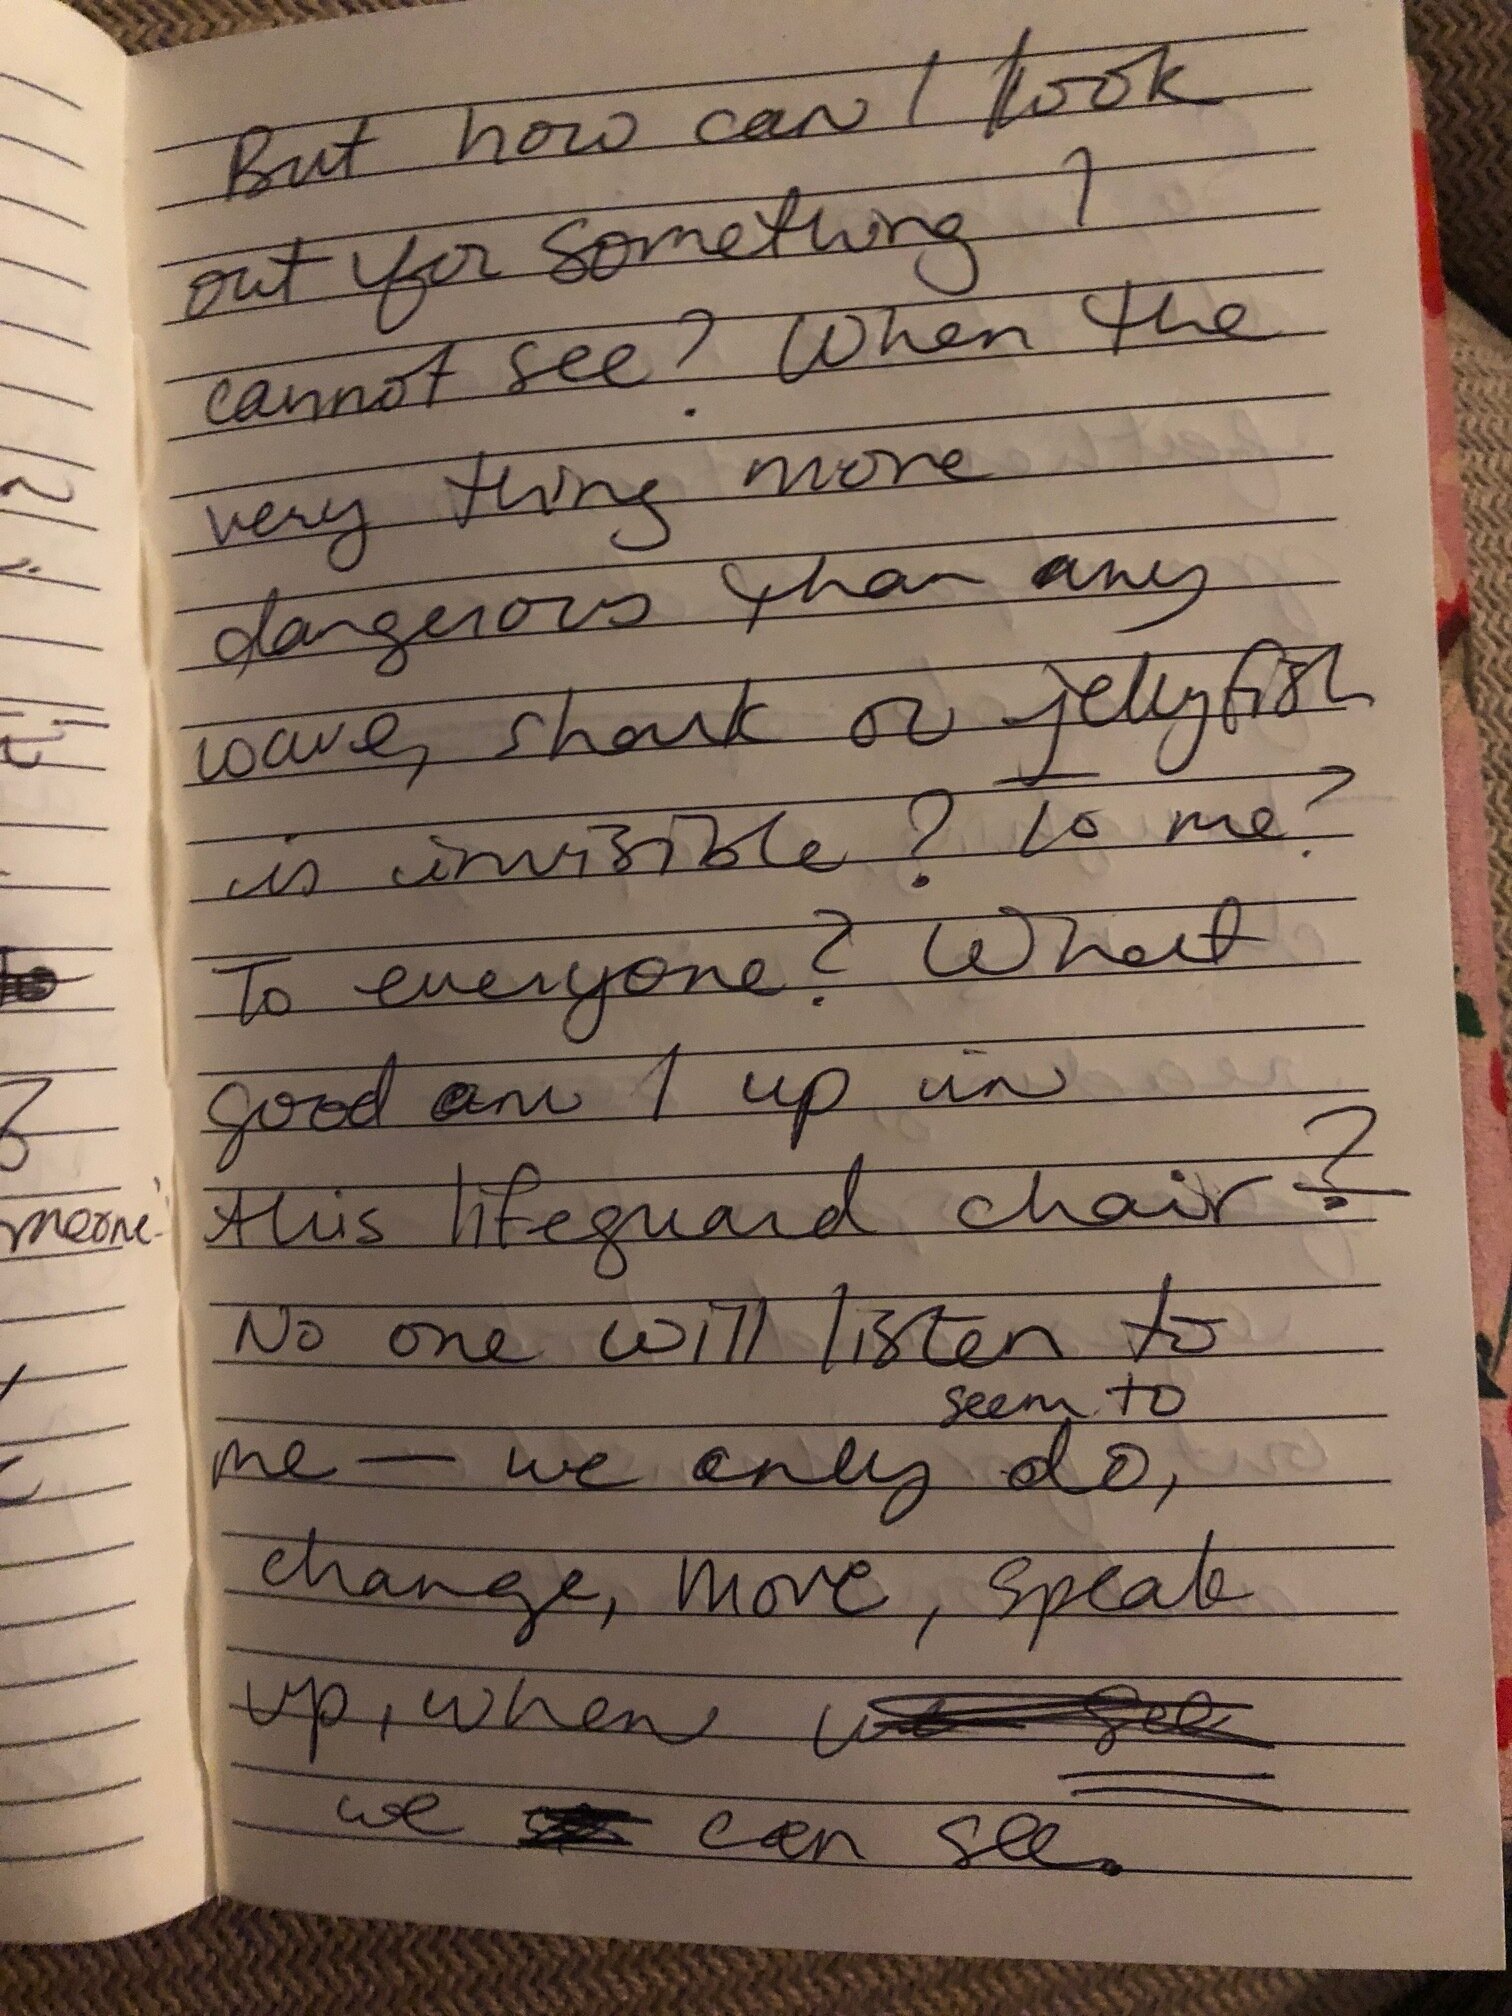 But how can I look
out for something I
cannot see? When the
very thing more
dangerous than any
wave, shark or jellyfish
is invisible? To me?
To everyone? What
good am I up in
this lifeguard chair?
No one will listen to
seem to
me — we only do,
change, move, speak
up, when we see
we can see.
meone